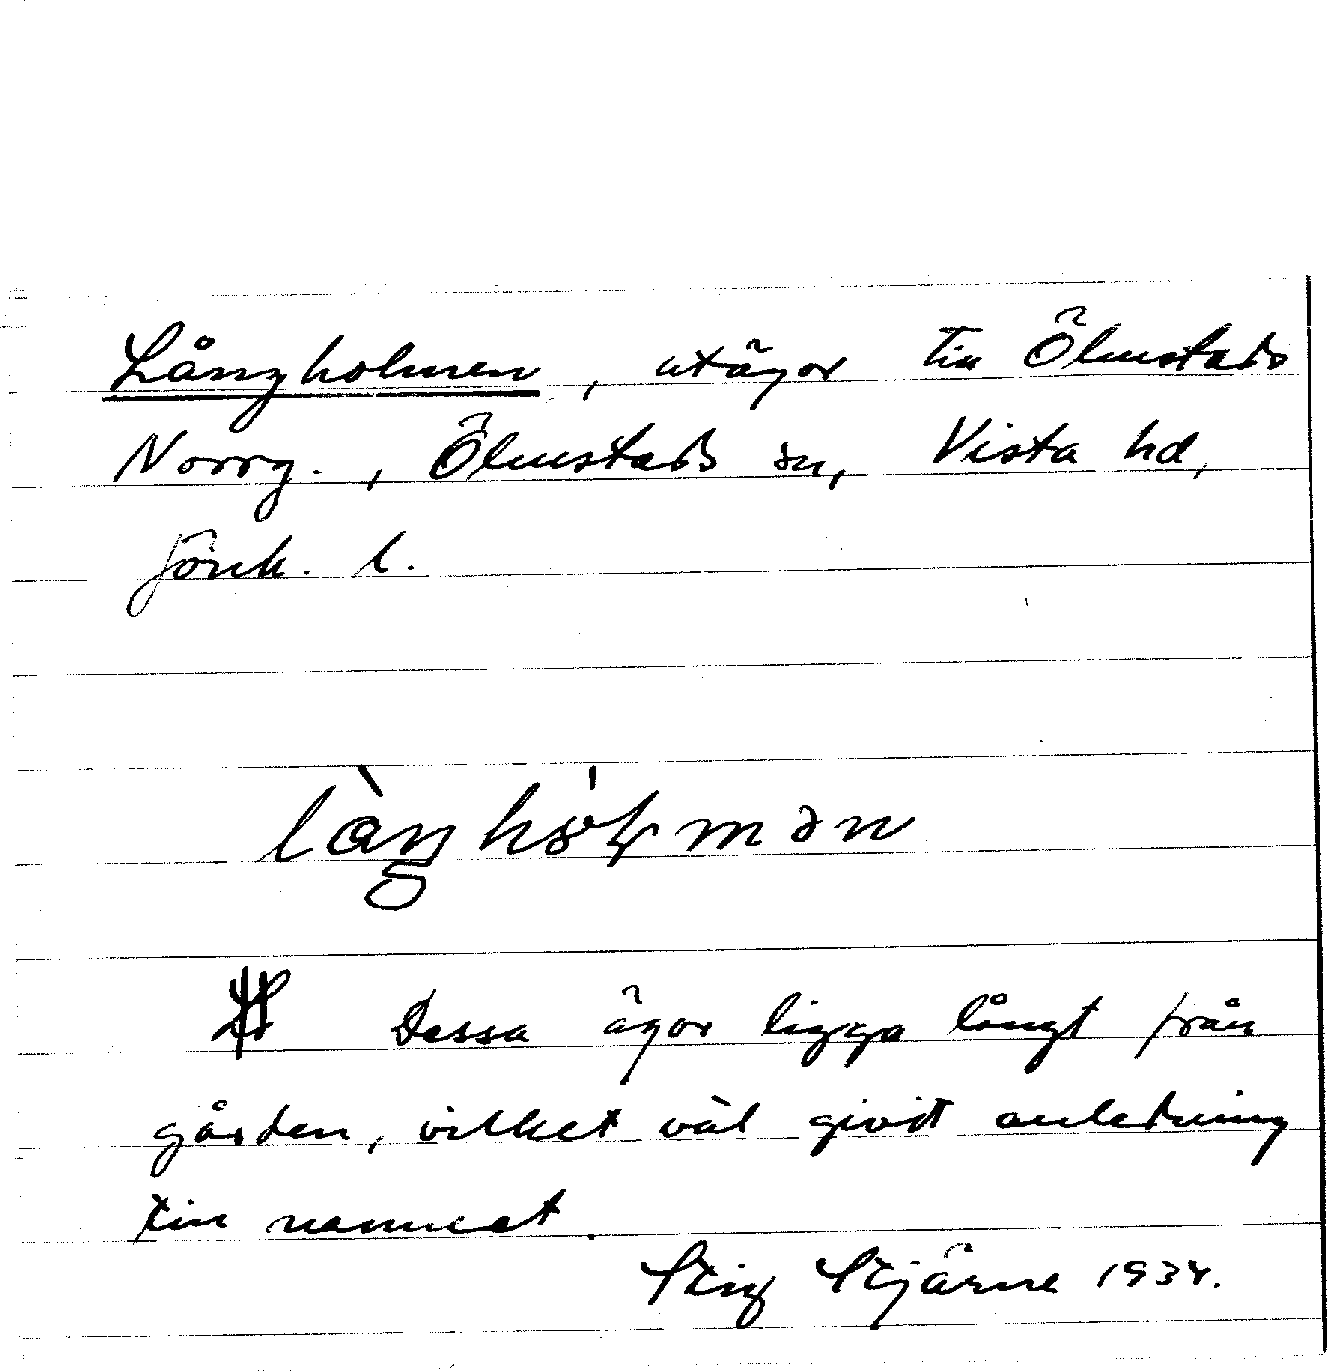 Långholmen, utägor till Ölmstads
Norrg., Ölmstads sn, Vista hd,
Jönk. l.
Dessa ägor ligga långt från
gården, vilket väl givit anledning
till namnet.
Stig Stjärne 1934.